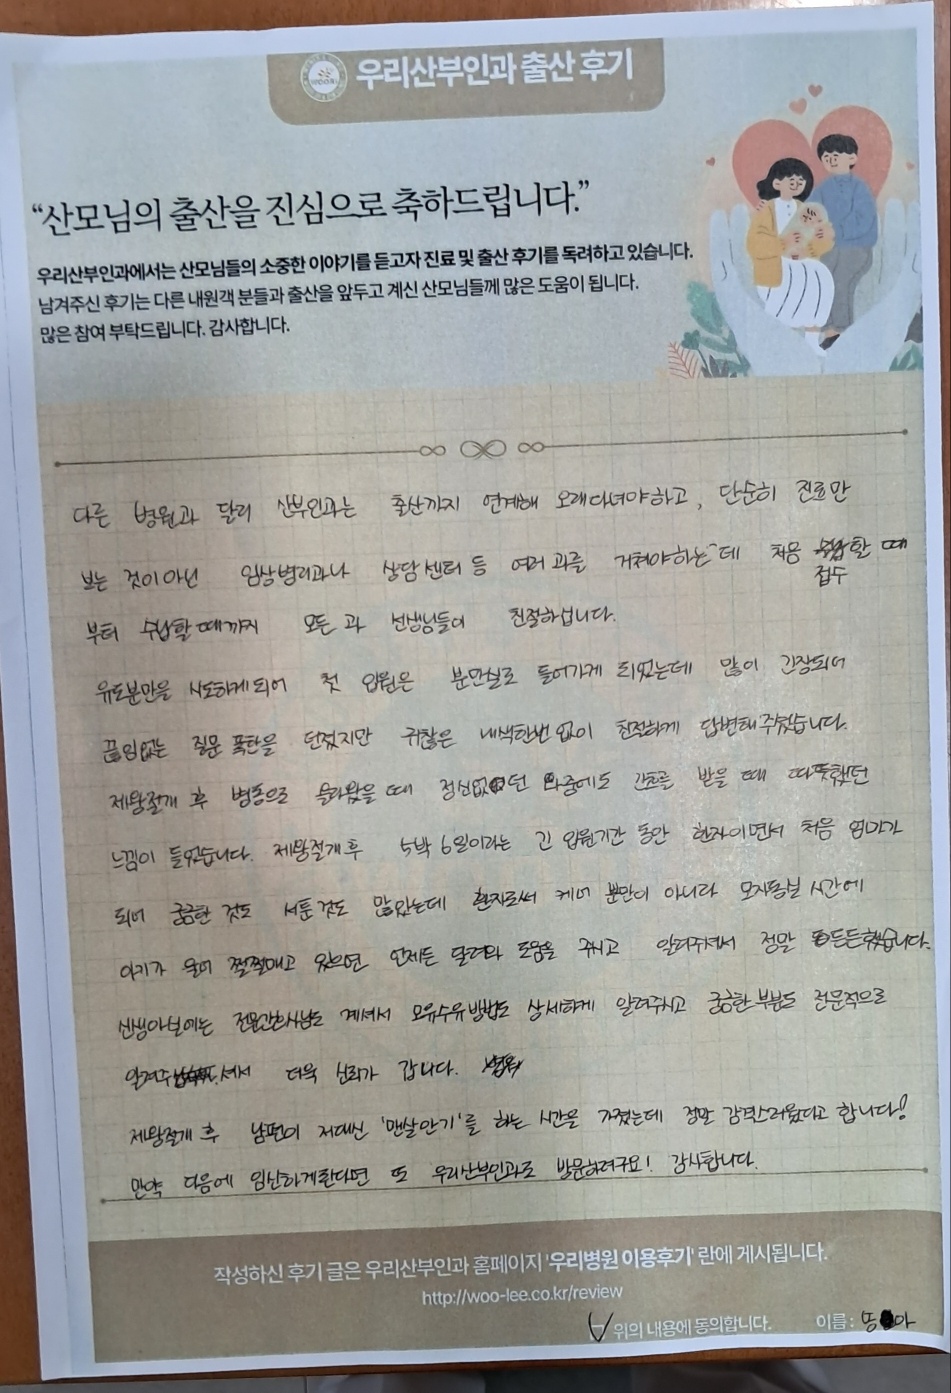 우리산부인과 출산 후기
“산모님의 출산을 진심으로 축하드립니다.”
우리산부인과에서는 산모님들의 소중한 이야기를 듣고자 진료 및 출산 후기를 독려하고 있습니다.
남겨주신 후기는 다른 내원객 분들과 출산을 앞두고 계신 산모님들께 많은 도움이 됩니다.
많은 참여 부탁드립니다. 감사합니다.
다른 병원과 달리 산부인과는 출산까지 연계해 오래다녀야하고, 단순히 진료만
보는 것이 아닌 임상병리과나 상담센터 등 여러 과를 거쳐야하는데 처음 접수할 때
부터 수납할 때까지 모든 과 선생님들이 친절하십니다.
유도분만을 시도하게 되어 첫 입원은 분만실로 들어가게 되었는데 많이 긴장되어
끊임없는 질문 폭탄을 던졌지만 귀찮은 내색한번 없이 친절하게 답변해주셨습니다.
제왕절개 후 병동으로 올라왔을 때 정신없던 와중에도 간호를 받을 때 따뜻했던
느낌이 들었습니다. 제왕절개 후 5박 6일이라는 긴 입원기간 동안 환자이면서 처음 엄마가
되어 궁금한 것도 서툰것도 많았는데 환자로서 케어 뿐만이 아니라 모자동실 시간에
아기가 울어 쩔쩔매고 있으면 언제든 달려와 도움을 주시고 알려주셔서 정말 든든했습니다.
신생아실에는 전문간호사님도 계셔서 모유수유방법도 상세하게 알려주시고 궁금한 부분도 전문적으로
알려주셔서 더욱 신뢰가 갑니다.
제왕절개 후 남편이 저대신 '맨살안기'를 하는 시간을 가졌는데 정말 감격스러웠다고 합니다!
만약 다음에 임신하게된다면 또 우리산부인과로 방문하려구요! 감사합니다.
작성하신 후기 글은 우리산부인과 홈페이지 '우리병원 이용후기' 란에 게시됩니다.
http://woo-lee.co.kr/review
위의 내용에 동의합니다. 이름: